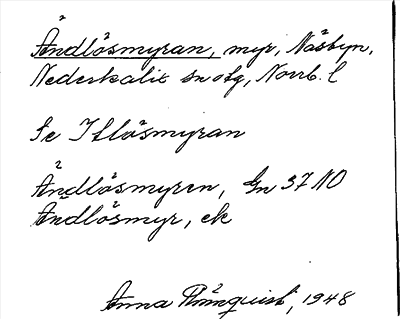 Ändlösmyran, myr, Näsbyn,
Nederkalix sn o tg, Norrb. l
Se Islösmyran
Ändlösmyren, Gn 37 NO
Ändlösmyr, ek
Anna 1948